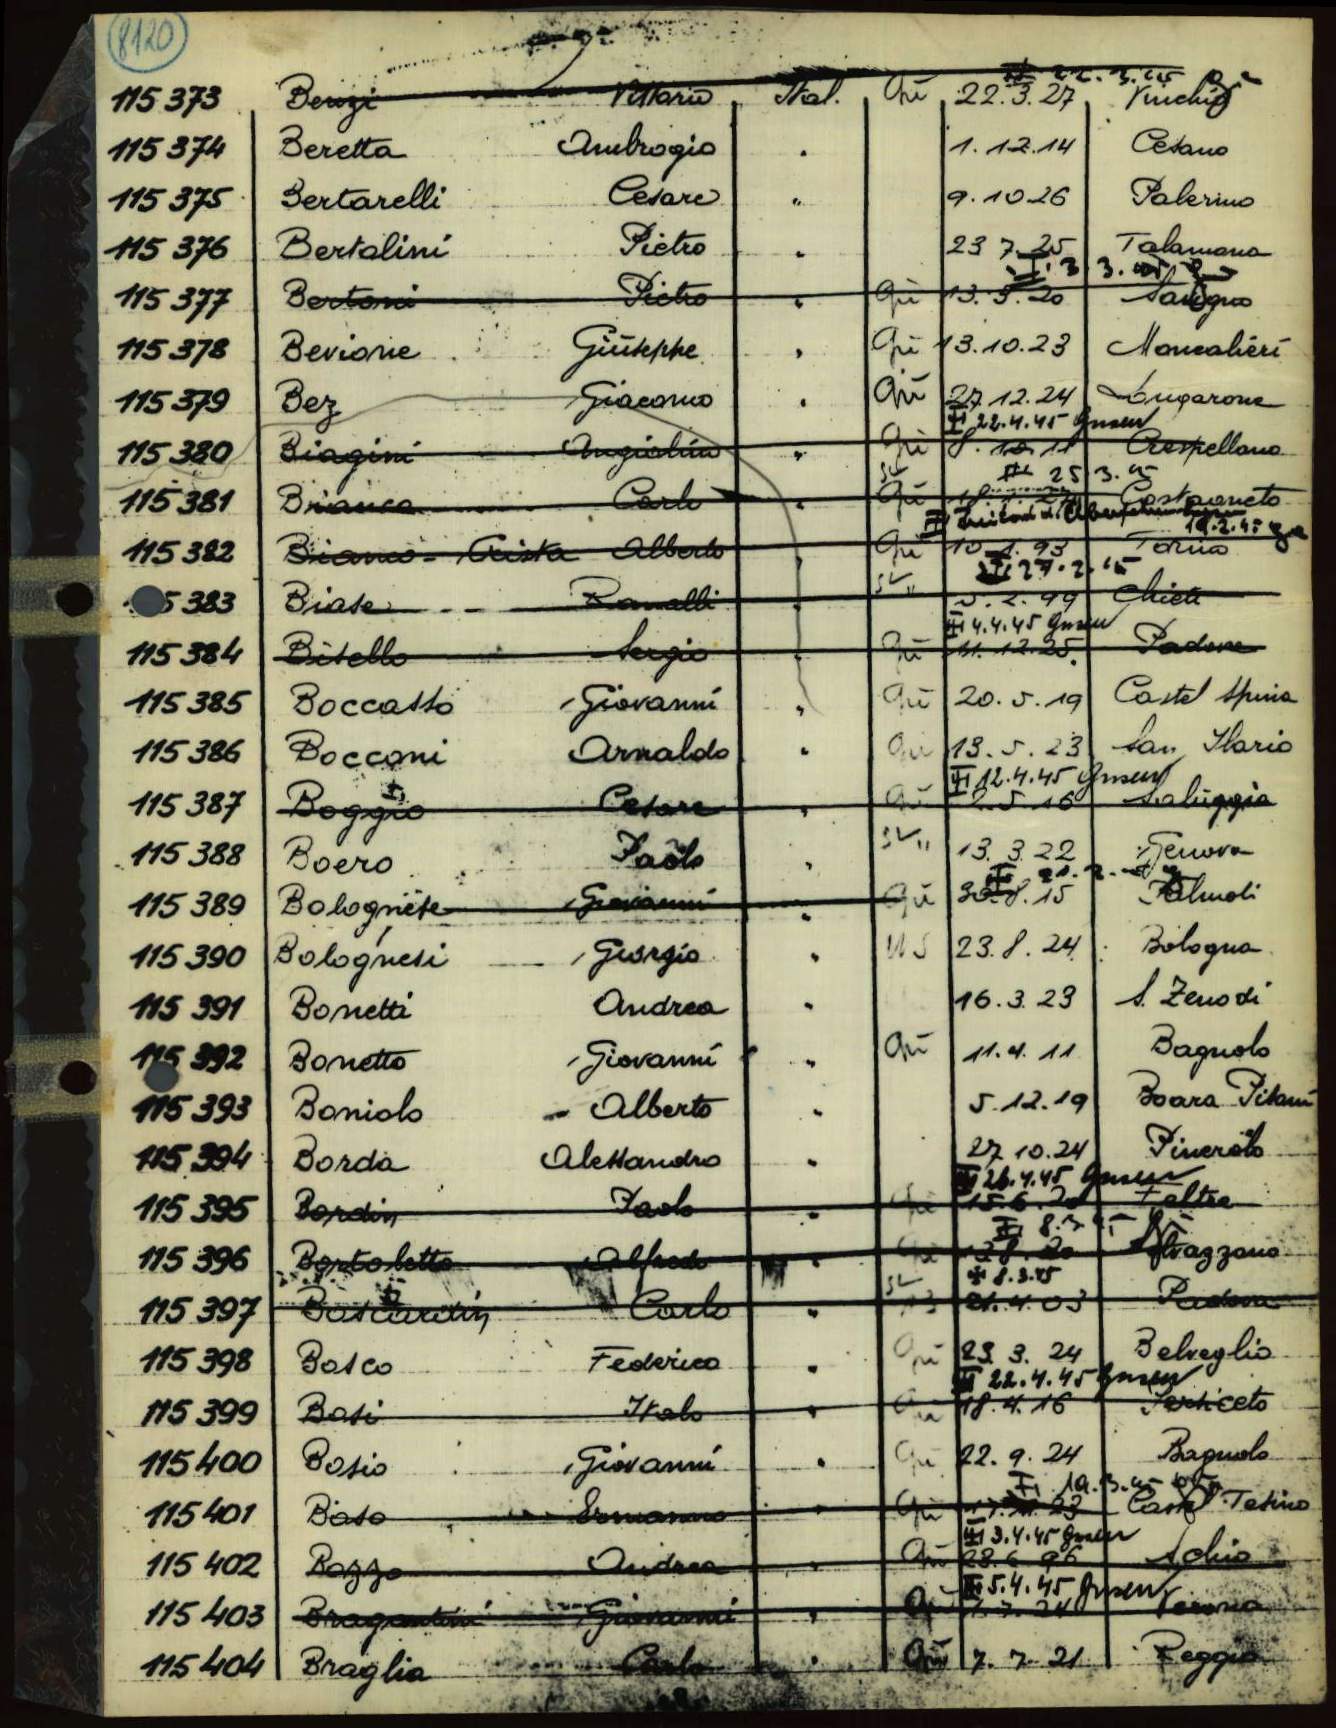 8120
115 373 Benzi Vittorio Ital. Gu 22.3.27 Vinchio
115 374 Beretta Ambrogio " 1.12.14 Cesano
115 375 Bertarelli Cesare " 9.10.26 Palermo
115 376 Bertalini Pietro " 23 7.25 Talamona
3.3.45
115 377 Bertoni Pietro " Gu 13.3.20
115 378 Bevione Giuseppe " Gu 13.10.23 Moncalieri
115 379 Bez Giacomo " Gu 27.12.24 Longarone
22.4.45 Gusen
115 380 Biagini Angiolino " Gu Crespellano
25.3.45
115 381 Bianca Carlo " Gu Castagneto
115 382 Bianco - Crista Alberto " Gu 10.1.93 Torino
27.2.45
115 383 Biase Ranalli " 5.2.99 Chieti
4.4.45 Gusen
115 384 Bisello Sergio " Gu 11.12.25. Padova
115 385 Boccasso Giovanni " Gu 20.5.19 Castel Spina
115 386 Bocconi Arnaldo " Gu 13.5.23 San Ilario
12.4.45 Gusen
115 387 Boggio Cesare " Gu 2.5.16 Saluggia
115 388 Boero Paolo " 13.3.22 Genova
115 389 Bolognese Giovanni " Gu 30.8.15
115 390 Bolognesi Giorgio " 23.8.24 Bologna
115 391 Bonetti Andrea " 16.3.23 S. Zenodi
115 392 Bonetto Giovanni " Gu 11.4.11 Bagnolo
115 393 Boniolo Alberto " 5.12.19 Boara Pisani
115 394 Borda Alessandro " 27 10.24 Pinerolo
26.4.45 Gusen
115 395 Bordin Paolo " Gu 15.6.20 Feltre
8.3.45
115 396 Bortoletto Alfredo " Gu
8.3.45
115 397 Boscardin Carlo " 21.4.03 Padova
115 398 Bosco Federico " Gu 23.3.24 Belveglio
22.4.45 Gusen
115 399 Bosi Italo " Gu 18.4.16
115 400 Bosio Giovanni " Gu 22.9.24 Bagnolo
19.3.45
115 401 Boso Ermanno " Gu Castel Tesino
3.4.45 Gusen
115 402 Bozzo Andrea " Gu 28.6.96 Schio
5.4.45 Gusen
115 403 Bragantini Giovanni " Gu 1.7.24 Verona
115 404 Braglia Carlo " Gu 7.7.21 Reggio